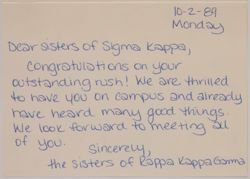 10-2-89
Monday
Dear Sisters of Sigma Kappa,
Congratulations on your
outstanding rush! We are thrilled
to have you on campus and already
have heard many good things.
We look forward to meeting all
of you.
Sincerely,
the Sisters of Kappa Kappa Gamma